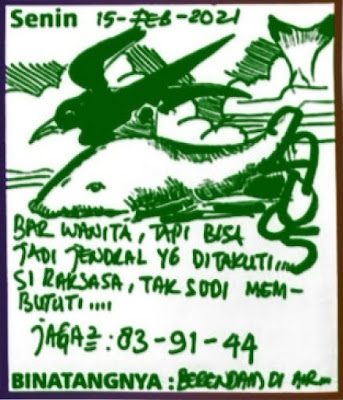 Senin 15-FEB-2021
BAR WANITA, TAPI BISA
JADI JENDRAL YG DITAKUTI....
SI RAKSASA, TAK SUDI MEM-
BUTUTI....
JAGA2 : 83-91-44
BINATANGNYA : BERENDAM DI AIR